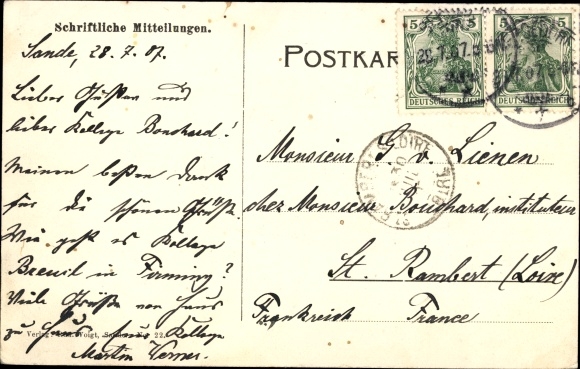 Schriftliche Mitteilungen.
Sande, 28.7.07.
Lieber und
lieber Kollege Bouchard!
Meinen besten Dank
für die schönen Grüße.
Wie geht es Kollege
Breuil in Firminy?
Viele Grüße von Haus
zu Haus Kollege
Martin Werner.
Verlag: Voigt, 22
POSTKAR
5 5
DEUTSCHES REICH
5 5
DEUTSCHES REICH
Monsieur G. v. Lienen
chez Monsieur Bouchard, instituteur
St. Rambert (Loire)
Frankreich France